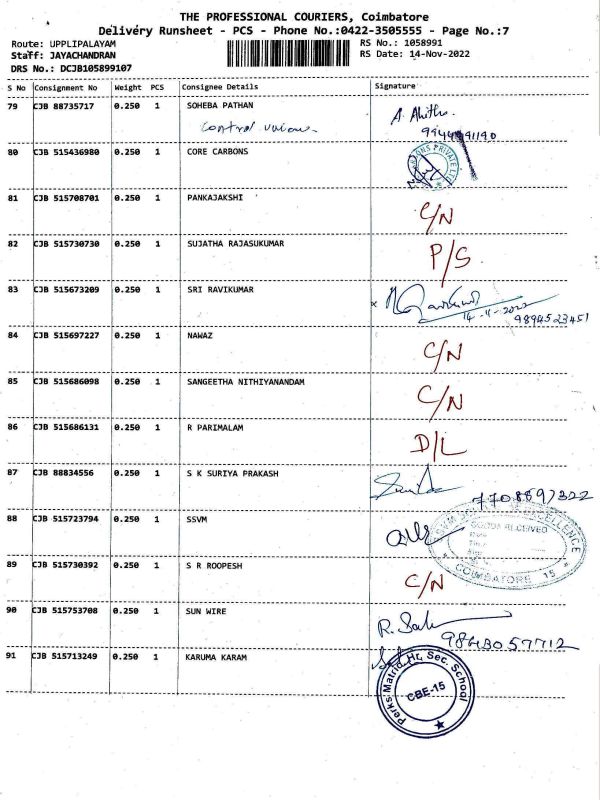 THE PROFESSIONAL COURIERS, Coimbatore
Delivery Runsheet - PCS - Phone No.:0422-3505555 - Page No.:7
Route: UPPLIPALAYAM
RS No.: 1058991
Staff: JAYACHANDRAN
RS Date: 14-Nov-2022
DRS No.: DCJB105899107
S No Consignment No Weight PCS Consignee Details Signature
79 CJB 88735717 0.250 1 SOHEBA PATHAN
80 CJB 515436980 0.250 1 CORE CARBONS
81 CJB 515708701 0.250 1 PANKAJAKSHI
C/N
82 CJB 515730730 0.250 1 SUJATHA RAJASUKUMAR
P/S
83 CJB 515673209 0.250 1 SRI RAVIKUMAR
14-11-2022
9894523451
84 CJB 515697227 0.250 1 NAWAZ
C/N
85 CJB 515686098 0.250 1 SANGEETHA NITHIYANANDAM
C/N
86 CJB 515686131 0.250 1 R PARIMALAM
D/L
87 CJB 88834556 0.250 1 S K SURIYA PRAKASH
7708897322
88 CJB 515723794 0.250 1 SSVM
EXCELLENCE
RECEIVED
COIMBATORE 15
89 CJB 515730392 0.250 1 S R ROOPESH
C/N
90 CJB 515753708 0.250 1 SUN WIRE
9843057712
91 CJB 515713249 0.250 1 KARUMA KARAM
Perks Matric Hr. Sec. School
CBE-15